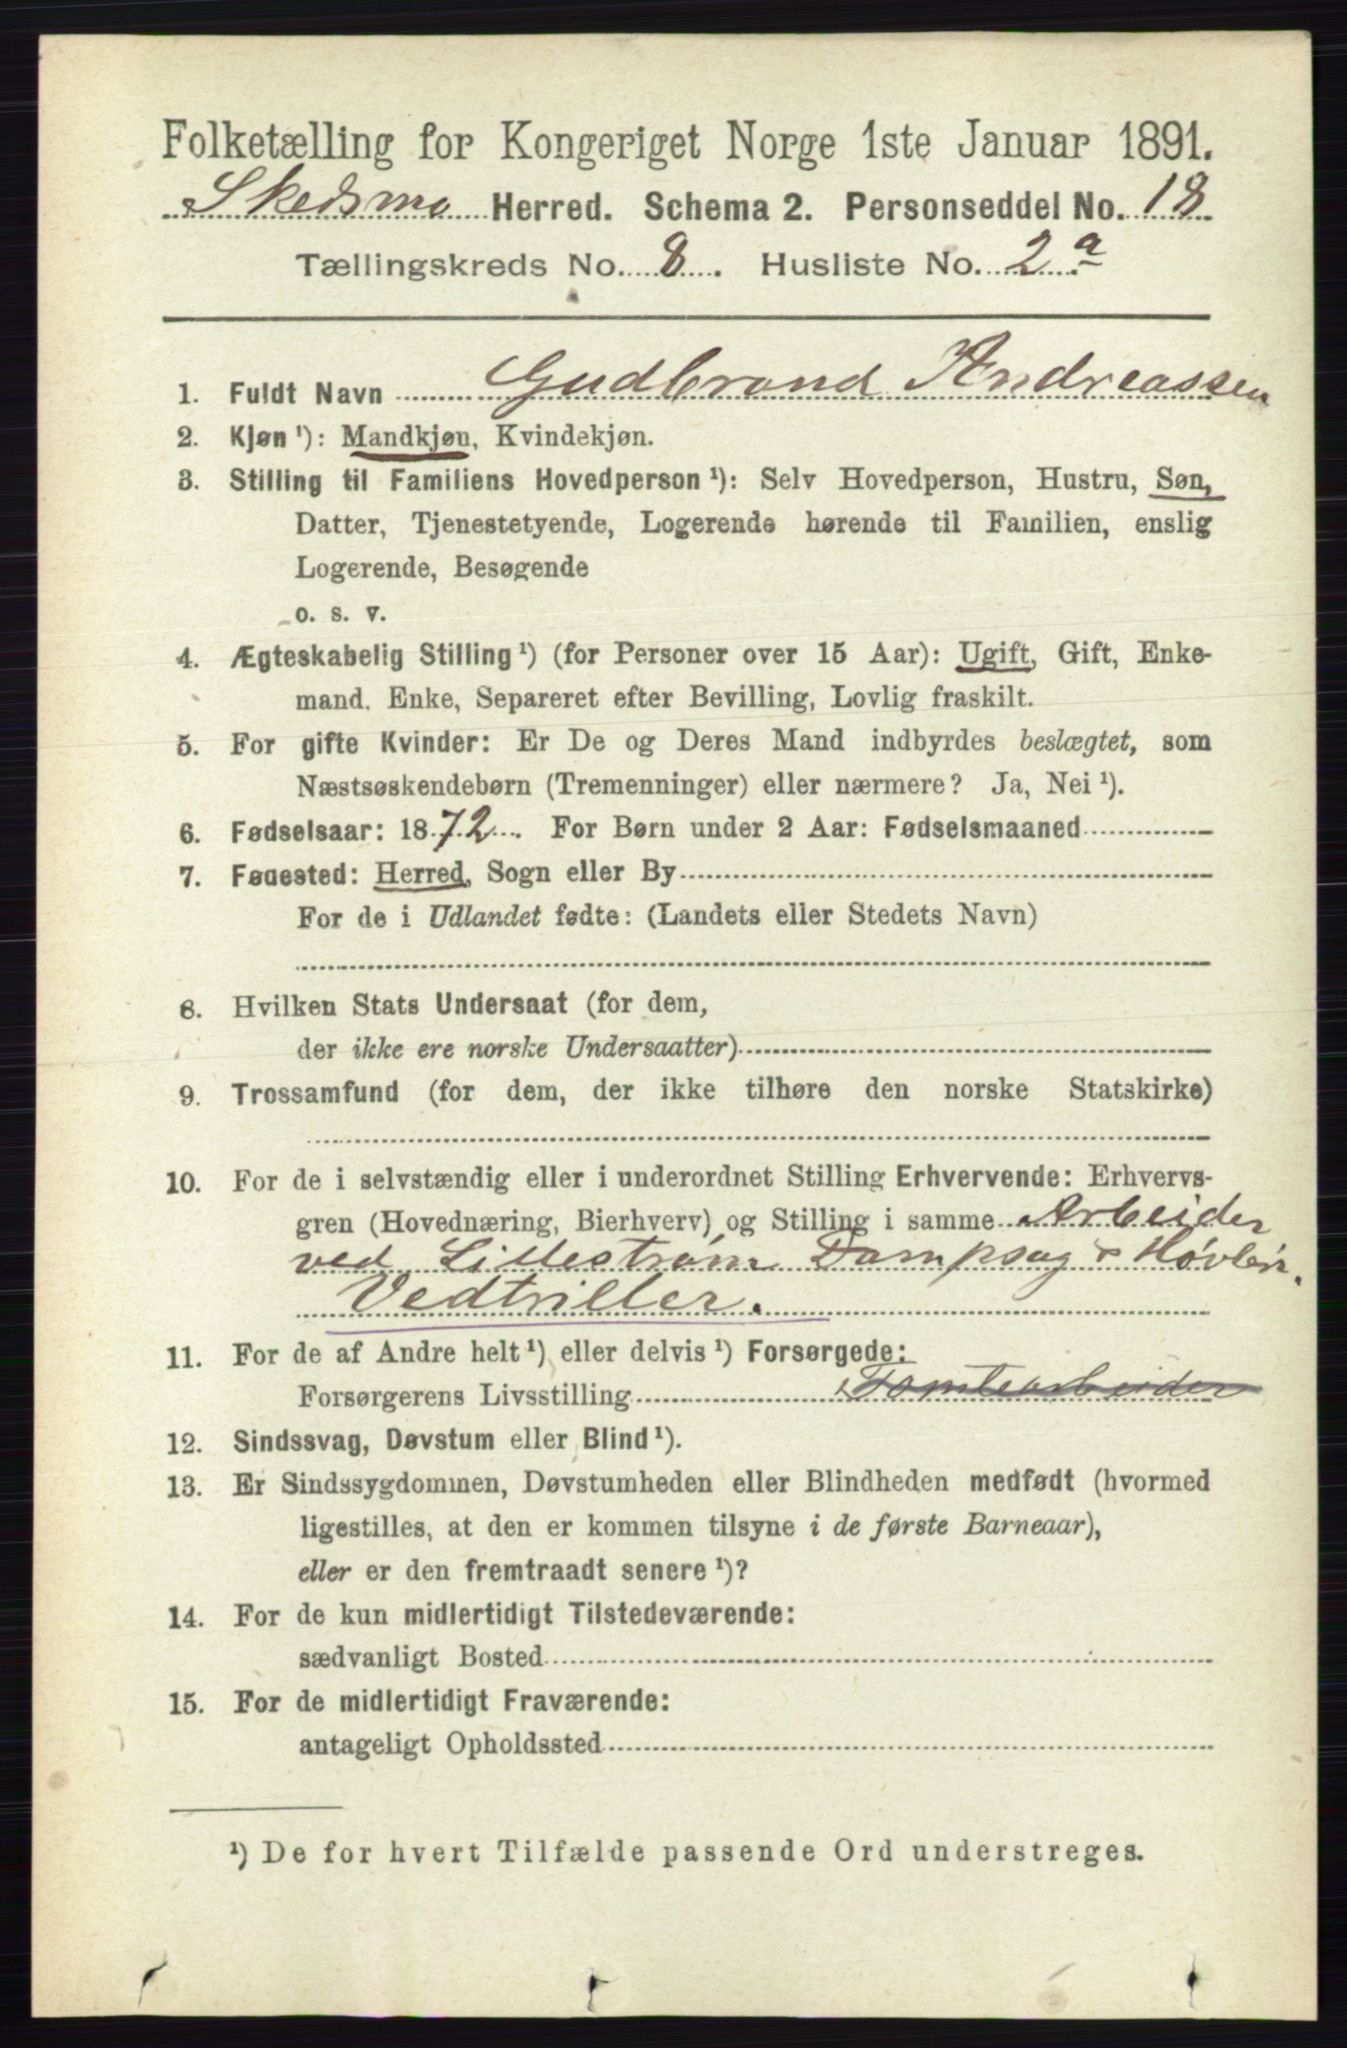 Folketælling for Kongeriget Norge 1ste Januar 1891.
Skedsmo Herred. Schema 2. Personseddel No. 18
Tællingskreds No. 8. Husliste No. 2 a
1. Fuldt Navn Gudbrand Andreassen
2. Kjøn¹): Mandkjøn, Kvindekjøn.
3. Stilling til Familiens Hovedperson¹): Selv Hovedperson, Hustru, Søn,
Datter, Tjenestetyende, Logerende hørende til Familien, enslig
Logerende, Besøgende
o. s. v.
4. Ægteskabelig Stilling¹) (for Personer over 15 Aar): Ugift, Gift, Enke-
mand. Enke, Separeret efter Bevilling, Lovlig fraskilt.
5. For gifte Kvinder: Er De og Deres Mand indbyrdes beslægtet, som
Næstsøskendebørn (Tremenninger) eller nærmere? Ja, Nei¹).
6. Fødselsaar: 1872. For Børn under 2 Aar: Fødselsmaaned
7. Fødested: Herred, Sogn eller By
For de i Udlandet fødte: (Landets eller Stedets Navn)
8. Hvilken Stats Undersaat (for dem,
der ikke ere norske Undersaatter)
9. Trossamfund (for dem, der ikke tilhøre den norske Statskirke)
10. For de i selvstændig eller i underordnet Stilling Erhvervende: Erhvervs-
gren (Hovednæring, Bierhverv) og Stilling i samme Arbeider
ved Lillestrøm Dampsag & Høvleri.
Vedtriller.
11. For de af Andre helt¹) eller delvis¹) Forsørgede:
Forsørgerens Livsstilling Tomtearbeider
12. Sindssvag, Døvstum eller Blind¹).
13. Er Sindssygdommen, Døvstumheden eller Blindheden medfødt (hvormed
ligestilles, at den er kommen tilsyne i de første Barneaar),
eller er den fremtraadt senere¹)?
14. For de kun midlertidigt Tilstedeværende:
sædvanligt Bosted
15. For de midlertidigt Fraværende:
antageligt Opholdssted
¹) De for hvert Tilfælde passende Ord understreges.